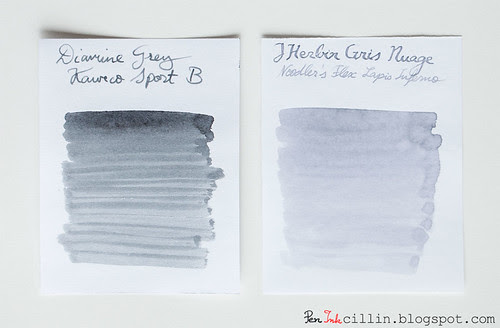 Diamine Grey
Kaweco Sport B
J Herbin Gris Nuage
Noodler's Flex Lapis Inferno
Pen Inkcillin.blogspot.com